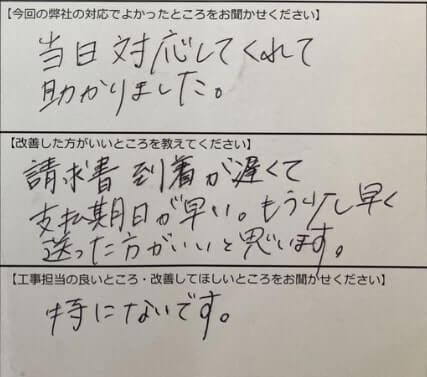 【今回の弊社の対応でよかったところをお聞かせください】
当日対応してくれて
助かりました。
【改善した方がいいところを教えてください】
請求書到着が遅くて
支払期日が早い。もう少し早く
送った方がいいと思います。
【工事担当の良いところ・改善してほしいところをお聞かせください】
特にないです。